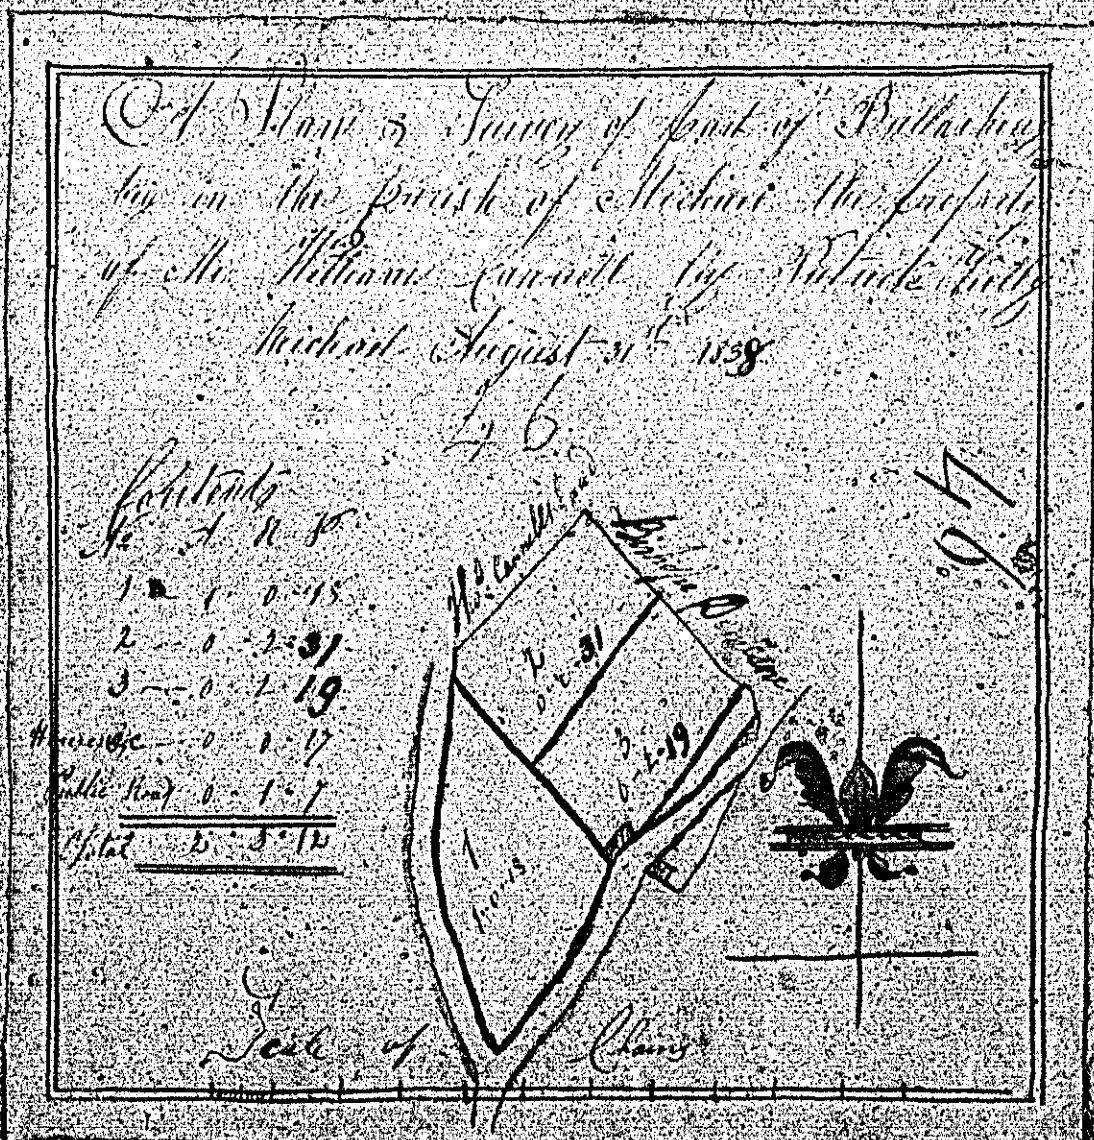 Plan & Survey of part of
in the parish of Michael the property
of Mr. William Cannell by Patrick Kelly
Michael August 31st 1838
46
97
Contents
No A R P
1 1 0 15
2 -- 0 - 2 - 31
3 -- 0 - 2 - 19
0 - 0 - 17
Public Road 0 - 1 - 7
Total 2 - 3 - 12
Cannell's
2
0 - 2 - 31
3
0 - 2 - 19
1
1 - 0 - 15
Scale of Chains